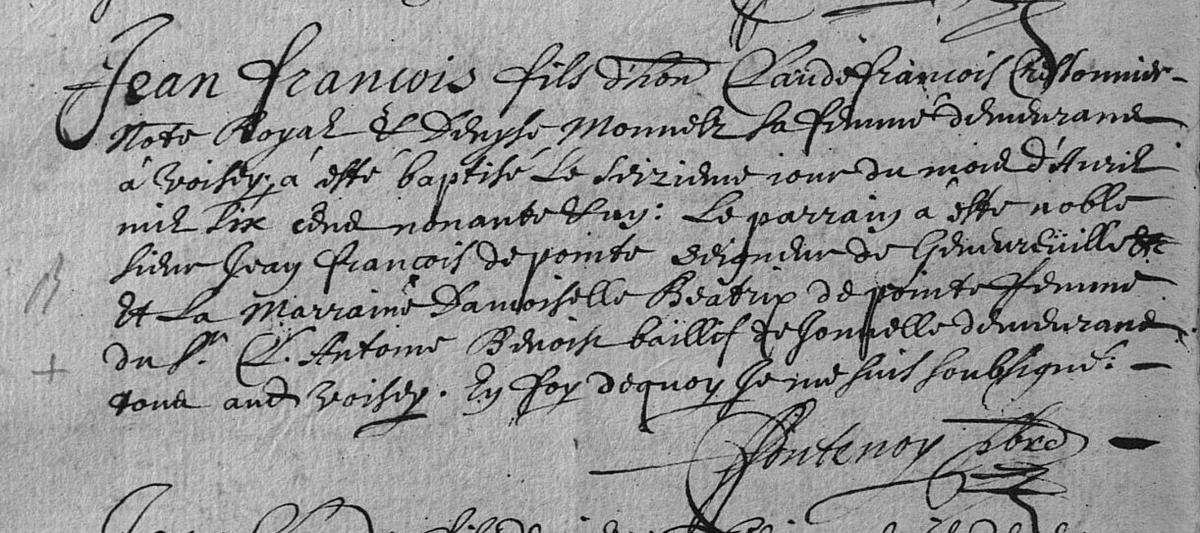 Jean francois fils d'hon Claude francois Cressonnier
Note Royal & Denyse Monnels sa femme demeurans
a voisey, a esté baptisé le seizieme iour du mois d'Avril
mil six cens nonante & un: Le parrain a esté noble
sieur Jean francois de pointe seigneur de Gevureüille
Et La Marraine Damoiselle Beatrix de pointe femme
du Sr C. Antoine Benoist baillif de Jonuelle demeurans
tous aud voisey. En foy dequoy Je me suis soubsigné:
Fontenoy pbre